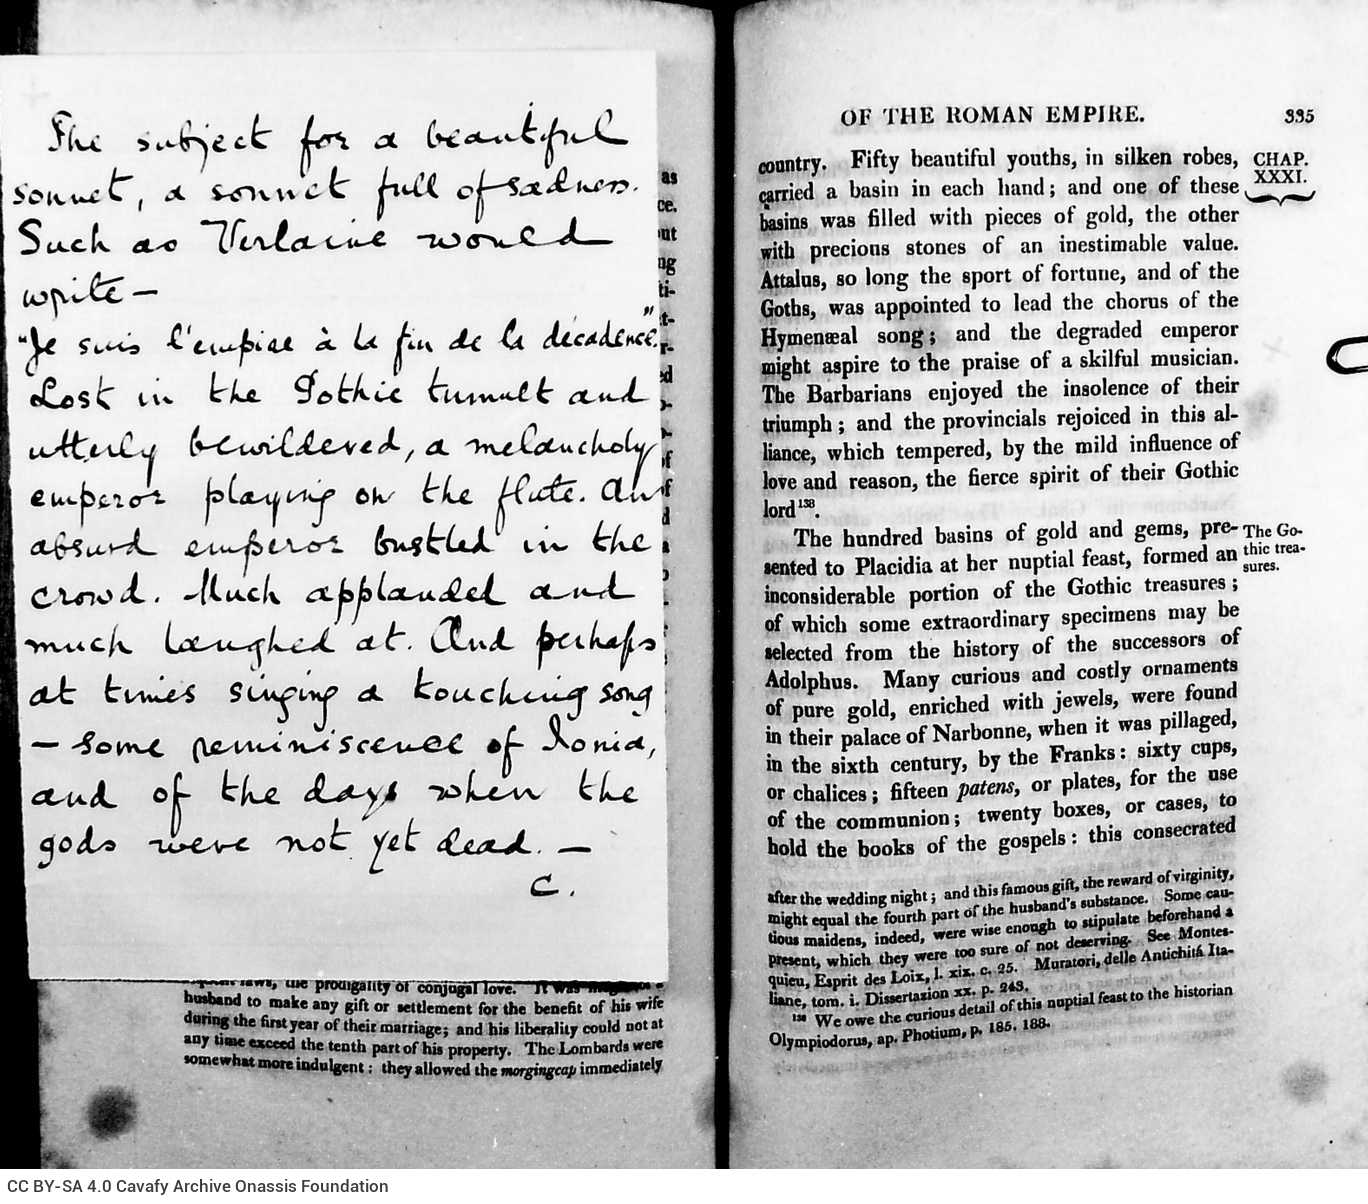 The subject for a beautiful
sonnet, a sonnet full of sadness.
Such as Verlaine would
write —
"Je suis l'empire à la fin de la décadence".
Lost in the Gothic tumult and
utterly bewildered, a melancholy
emperor playing on the flute. An
absurd emperor bustled in the
crowd. Much applauded and
much laughed at. And perhaps
at times singing a touching song
— some reminiscence of Ionia,
and of the days when the
gods were not yet dead. —
C.
as
ce.
ng
ti-
the prodigality of conjugal love. It was
husband to make any gift or settlement for the benefit of his wife
during the first year of their marriage; and his liberality could not at
any time exceed the tenth part of his property. The Lombards were
somewhat more indulgent: they allowed the morgingcap immediately
OF THE ROMAN EMPIRE. 335
CHAP.
XXXI.
country. Fifty beautiful youths, in silken robes,
carried a basin in each hand; and one of these
basins was filled with pieces of gold, the other
with precious stones of an inestimable value.
Attalus, so long the sport of fortune, and of the
Goths, was appointed to lead the chorus of the
Hymenæal song; and the degraded emperor
might aspire to the praise of a skilful musician.
The Barbarians enjoyed the insolence of their
triumph; and the provincials rejoiced in this al-
liance, which tempered, by the mild influence of
love and reason, the fierce spirit of their Gothic
lord 138.
The hundred basins of gold and gems, pre-
sented to Placidia at her nuptial feast, formed an
inconsiderable portion of the Gothic treasures;
of which some extraordinary specimens may be
selected from the history of the successors of
Adolphus. Many curious and costly ornaments
of pure gold, enriched with jewels, were found
in their palace of Narbonne, when it was pillaged,
in the sixth century, by the Franks: sixty cups,
or chalices; fifteen patens, or plates, for the use
of the communion; twenty boxes, or cases, to
hold the books of the gospels: this consecrated
The Go-
thic trea-
sures.
after the wedding night; and this famous gift, the reward of virginity,
might equal the fourth part of the husband's substance. Some cau-
tious maidens, indeed, were wise enough to stipulate beforehand a
present, which they were too sure of not deserving. See Montes-
quieu, Esprit des Loix, l. xix. c. 25. Muratori, delle Antichitá Ita-
liane, tom. i. Dissertazion xx. p. 243.
138 We owe the curious detail of this nuptial feast to the historian
Olympiodorus, ap. Photium, p. 185. 188.
CC BY-SA 4.0 Cavafy Archive Onassis Foundation